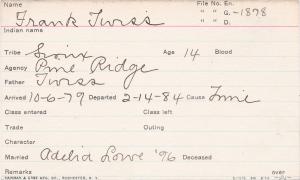 Name File No. En.
Frank Twiss " " G. -1878
Indian name " " D.
Tribe Sioux Age 14 Blood
Agency Pine Ridge
Father Twiss
Arrived 10-6-79 Departed 2-14-84 Cause Time
Class entered Class left
Trade Outing
Character
Married Adelia Lowe '96 Deceased
Remarks over